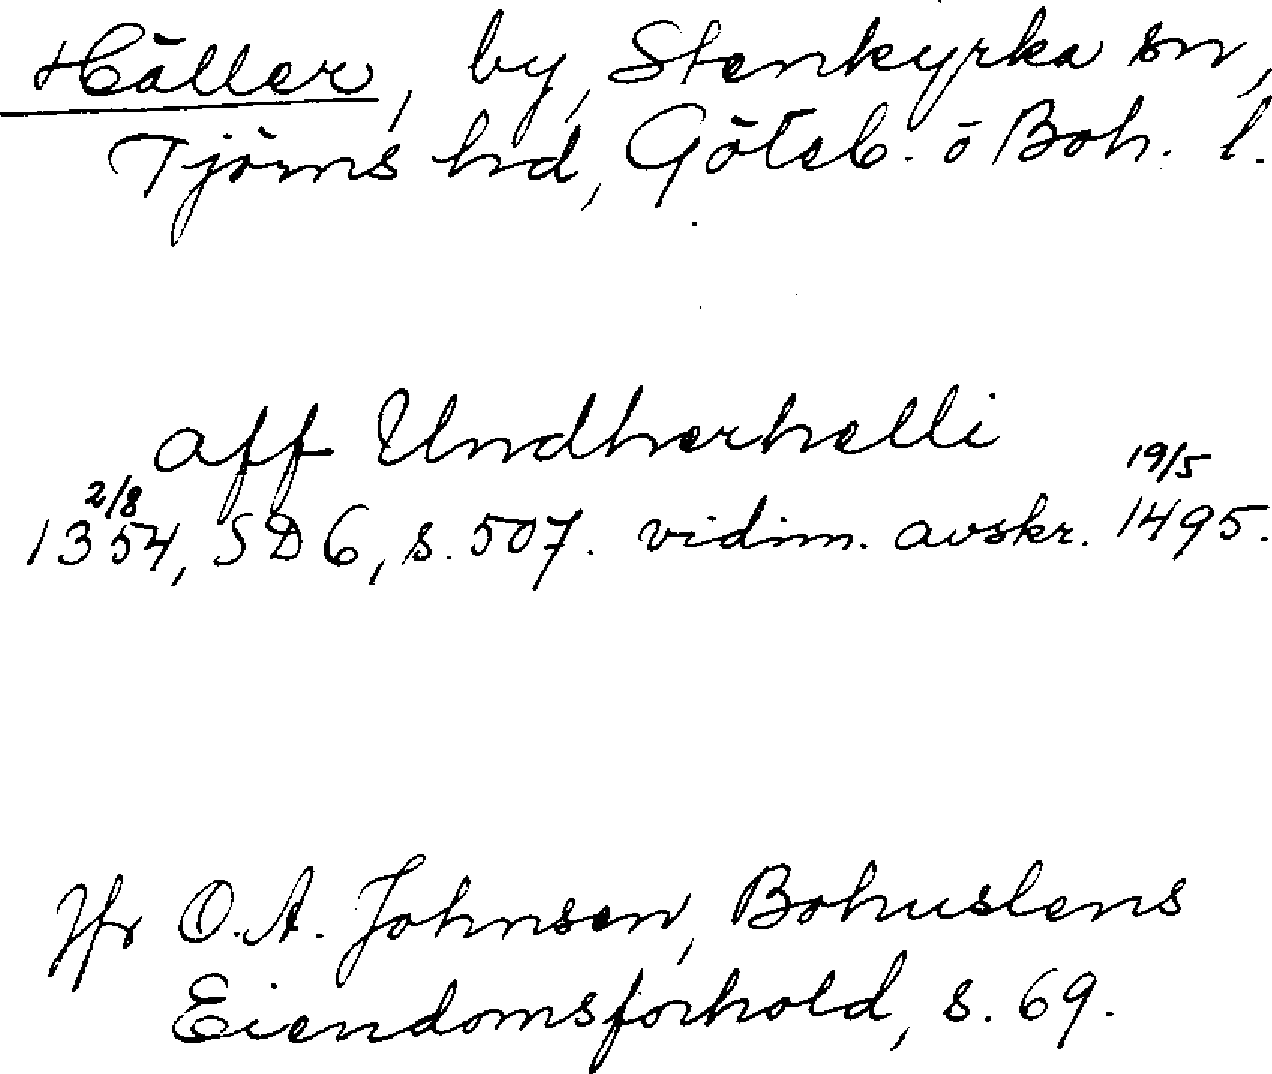 Häller, by, Stenkyrka sn,
Tjörns hd, Göteb. o Boh. l.
aff Undherhelli
2/8 19/5
1354, SD 6, s. 507. vidim. avskr. 1495.
Jfr O. A. Johnsen, Bohuslens
Eiendomsforhold, s. 69.